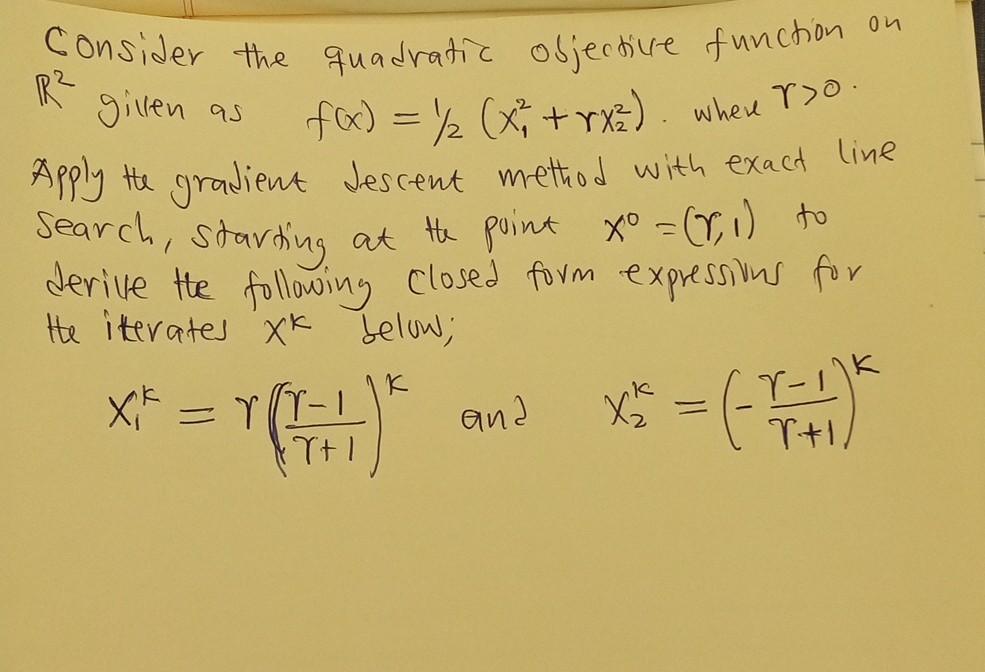 Consider the quadratic objective function on
ℝ² given as f(x) = 1/2 (x₁² + γx₂²). where γ>0.
Apply the gradient descent method with exact line
search, starting at the point x⁰ = (γ,1) to
derive the following closed form expressions for
the iterates xᴷ below;
x₁ᴷ = γ((γ-1)/(γ+1))ᴷ and x₂ᴷ = (-(γ-1)/(γ+1))ᴷ